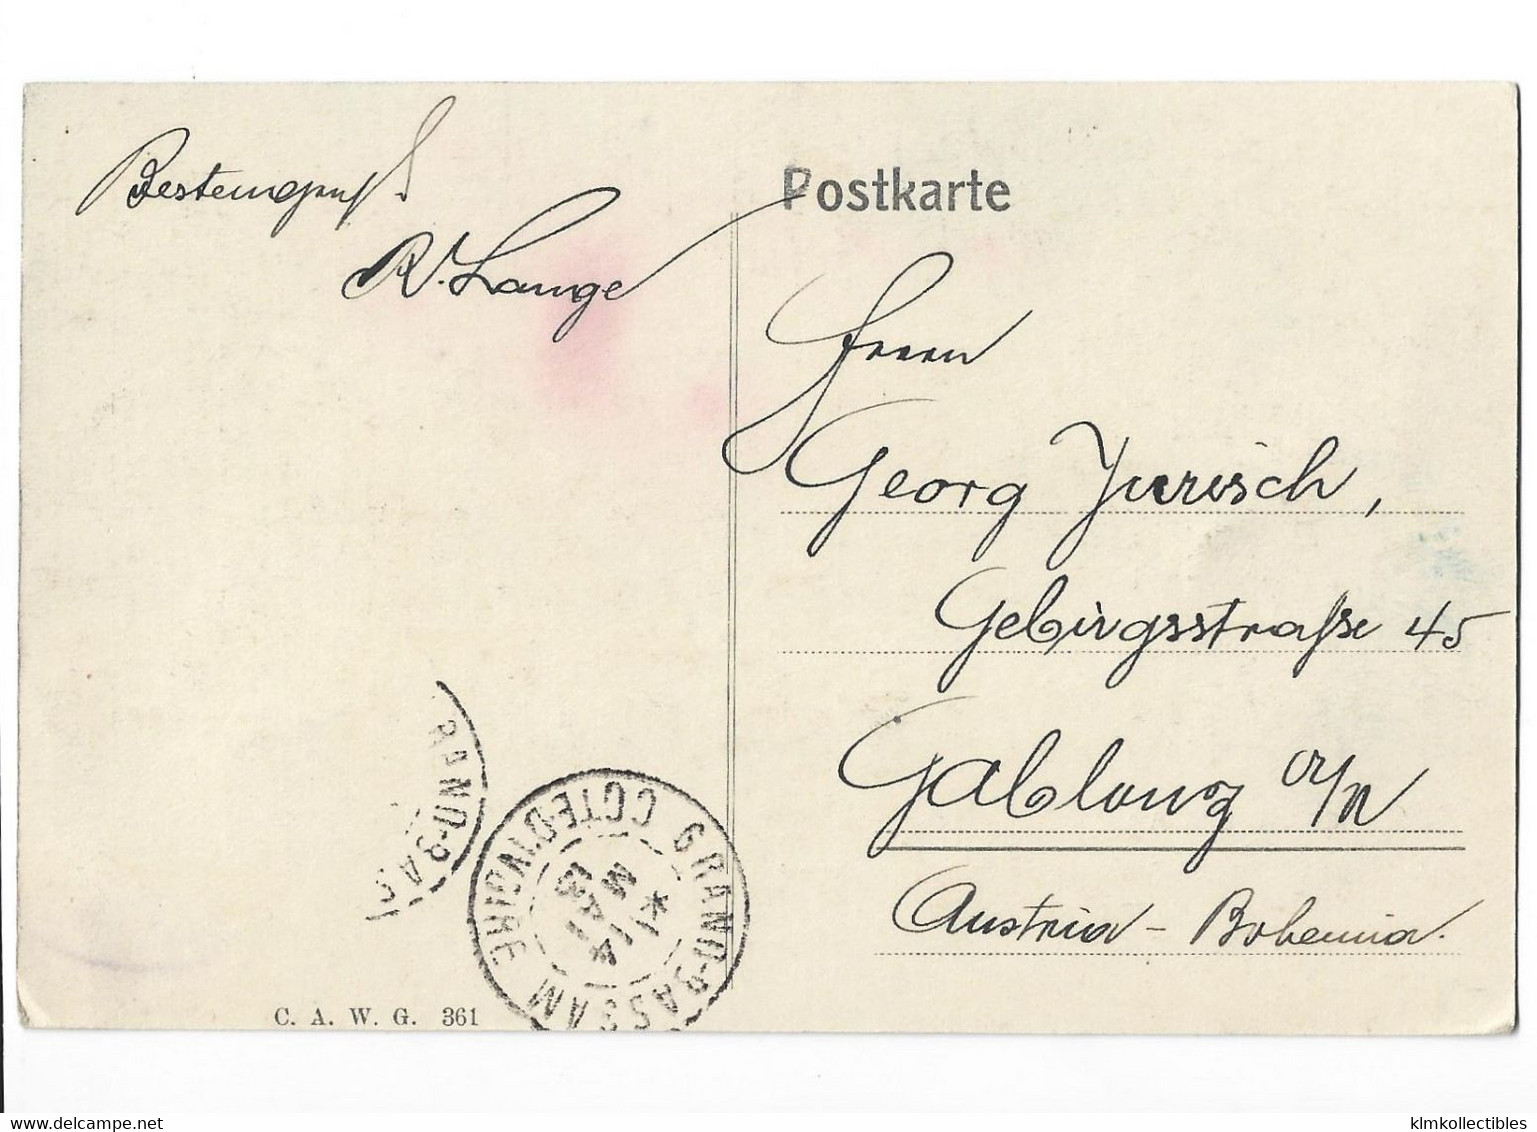 Besten Gruß!
R. Lange
Postkarte
Herrn
Georg Jurisch,
Gebirgsstraße 45
Gablonz a/N
Austria - Bohemia.
GRAND-BASSAM COTE-D'IVOIRE
13
MAI
14
RAND-BAS
C. A. W. G. 361
© www.delcampe.net
klmkollectibles